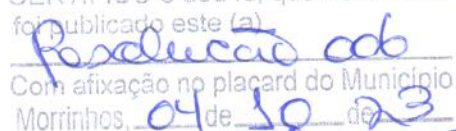 CERTIFICO e dou fé, que
foi publicado este (a)
Resolução 006
Com afixação no placard do Município
Morrinhos, 04 de 10 de 23